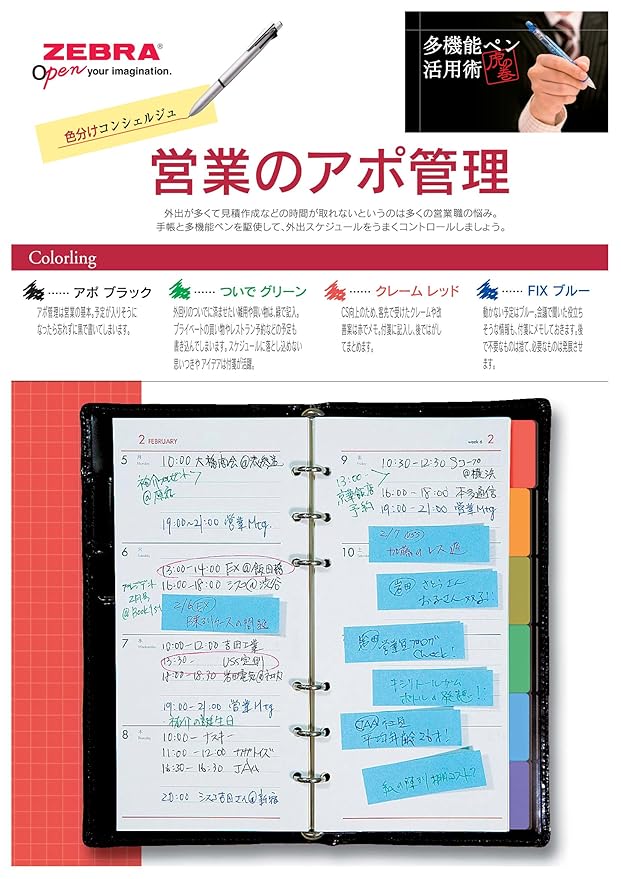 ZEBRA®
Open your imagination.
多機能ペン
活用術
虎の巻
色分けコンシェルジュ
営業のアポ管理
外出が多くて見積作成などの時間が取れないというのは多くの営業職の悩み。
手帳と多機能ペンを駆使して、外出スケジュールをうまくコントロールしましょう。
Colorling
…… アポ ブラック
アポ管理は営業の基本。予定が入りそうに
なったら忘れずに黒で書いてしまいます。
…… ついで グリーン
外回りのついでに済ませたい雑用や買い物は、緑で記入。
プライベートの買い物やレストラン予約などの予定も
書き込んでしまいます。スケジュールに落とし込めない
思いつきや アイデアは付箋が活躍。
…… クレーム レッド
CS向上のため、客先で受けたクレームや改
善案は赤でメモ。付箋に記入し、後ではがし
てまとめます。
…… FIX ブルー
動かない予定はブルー。会議で聞いた役立ち
そうな情報も、付箋にメモしておきます。後
で不要なものは捨て、必要なものは発展させ
ます。
2 FEBRUARY
5 月
Monday
10:00 大橋商会@
19:00~21:00 営業Mtg.
6 火
13:00-14:00 EX@飯田橋
16:00-18:00 シスコ@渋谷
@Book1st
2/6(EX)
7 水
10:00-12:00 吉田工業
13:30- USS定例
18:00-18:30 岩田電気@
19:00-21:00 営業Mtg
の誕生日
8 木
10:00- ナスキー
11:00-12:00
16:30-16:30 JAA
20:00 シスコ吉田さん@新宿
week 6 2
9 金
10:30-12:30 Sコープ
@横浜
13:00
京華飯店
予約
16:00-18:00 本多通信
19:00-21:00 営業Mtg
10 土
2/7 (USS)
加藤のレス遅
岩田 さとうさん
お子さん
営業ブログ
Check!
キシリトールガム
ボトルの発想!!
(JAA)
平均年齢26才!